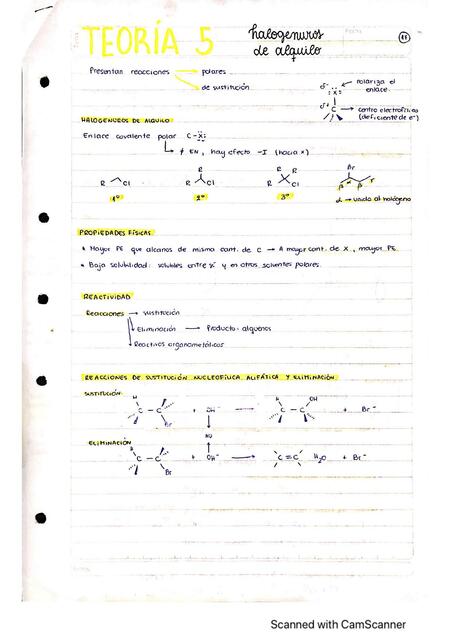 TEORÍA 5
halogenuros
de alquilo
Fecha
11
Presentan reacciones → polares
→ de sustitución
δ- :X: ← polariza el
enlace.
δ+ C → centro electrofílico
(deficiente de e-)
HALOGENUROS DE ALQUILO
Enlace covalente polar C-X:
↳ ≠ EN, hay efecto -I (hacia X)
R Cl
R R Cl
R R R Cl
Br α β β γ
1º 2º 3º α → unido al halógeno
PROPIEDADES FÍSICAS
• Mayor PE que alcanos de misma cant. de C → A mayor cont. de X, mayor PE.
• Baja solubilidad: solubles entre sí y en otros solventes polares.
REACTIVIDAD
Reacciones → sustitución
↳ Eliminación → Producto: alquenos
↳ Reactivos organometálicos
REACCIONES DE SUSTITUCIÓN NUCLEOFÍLICA ALIFÁTICA Y ELIMINACIÓN
SUSTITUCIÓN
H C - C Br + OH- → H C - C OH + Br-
NU
ELIMINACIÓN
H C - C Br + OH- → C = C H2O + Br-
Scanned with CamScanner